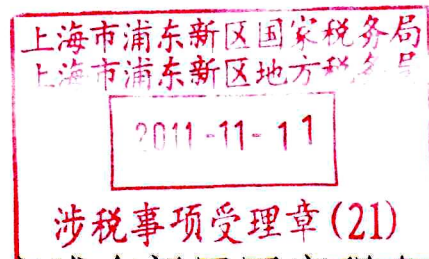 上海市浦东新区国家税务局
上海市浦东新区地方税务局
2011-11-11
涉税事项受理章(21)